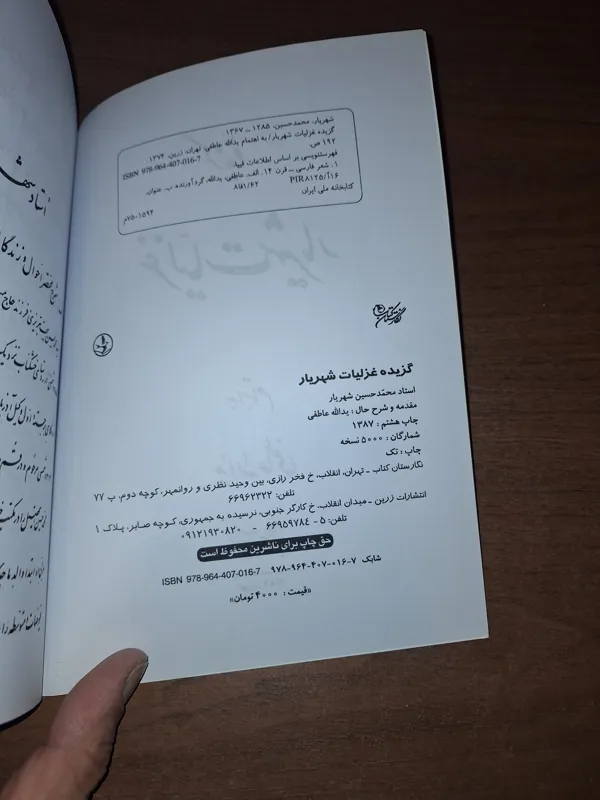 شهریار، محمدحسین، ۱۲۸۵ ـ ۱۳۶۷
گزیده غزلیات شهریار/ به اهتمام یدالله عاطفی. تهران، زرین، ۱۳۷۴.
۱۹۲ ص.
ISBN 978-964-407-016-7
فهرستنویسی بر اساس اطلاعات فیپا.
۱. شعر فارسی ــ قرن ۱۴. الف. عاطفی، یدالله، گردآورنده ب. عنوان.
۸فا۱/۶۲ PIR۸۱۲۵/آ۱۶
کتابخانه ملی ایران
۷۵-۱۵۹۴م
غزلیات شهریار
نگارستان کتاب
گزیده غزلیات شهریار
استاد محمّدحسین شهریار
مقدمه و شرح حال : یدالله عاطفی
چاپ هشتم : ۱۳۸۷
شمارگان : ۵۰۰۰ نسخه
چاپ : تک
نگارستان کتاب ـ تهران، انقلاب، خ فخر رازی، بین وحید نظری و روانمهر، کوچه دوم، پ ۷۷
تلفن: ۶۶۹۶۲۳۲۲
انتشارات زرین ـ میدان انقلاب، خ کارگر جنوبی، نرسیده به جمهوری، کوچه صابر، پلاک ۱
تلفن: ۵ - ۶۶۹۵۹۷۸۴ - ۰۹۱۲۱۹۳۰۸۲۰
حق چاپ برای ناشرین محفوظ است
شابک ۷-۰۱۶-۴۰۷-۹۶۴-۹۷۸ ISBN 978-964-407-016-7
«قیمت : ۴۰۰۰ تومان»